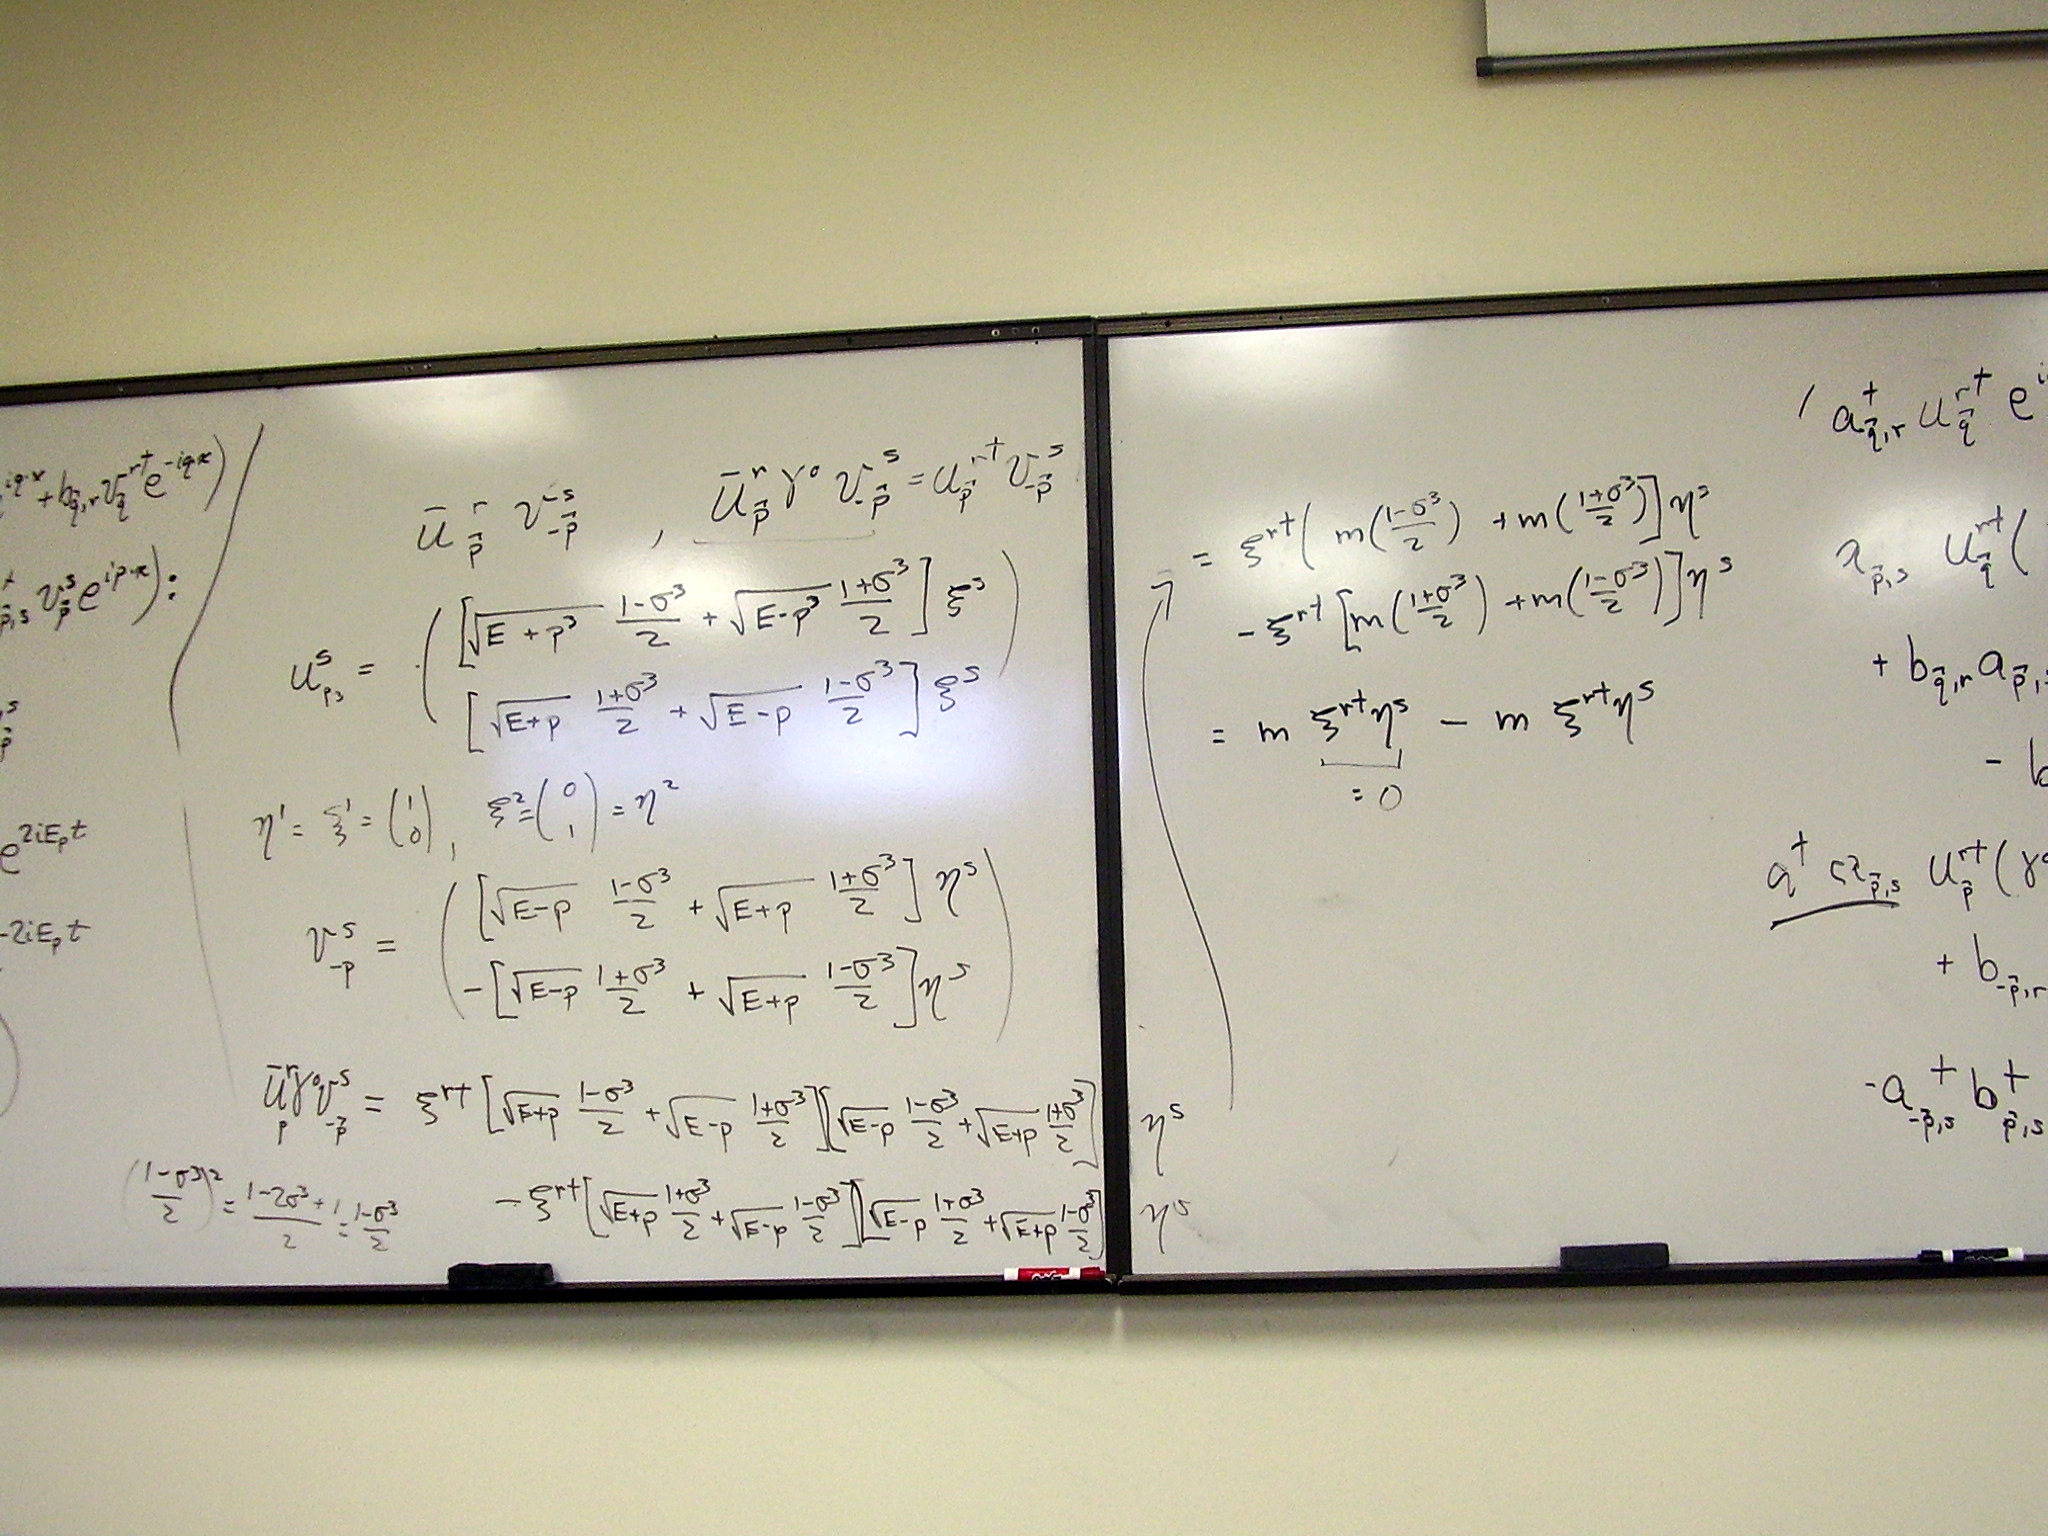 e^{iq·x} + b_{\vec{q},r} v_{\vec{q}}^{r†} e^{-iq·x})
_{\vec{p},s} v_{\vec{p}}^{s} e^{ip·x}):
e^{2iE_p t}
-2iE_p t
ū_{\vec{p}}^{r} v_{-\vec{p}}^{s} , ū_{\vec{p}}^{r} γ^0 v_{-\vec{p}}^{s} = u_{\vec{p}}^{r†} v_{-\vec{p}}^{s}
u_{p_3}^{s} = ( [√(E+p^3) (1-σ^3)/2 + √(E-p^3) (1+σ^3)/2] ξ^s
[√(E+p) (1+σ^3)/2 + √(E-p) (1-σ^3)/2] ξ^s )
η^1 = ξ^1 = (1 0), ξ^2 = (0 1) = η^2
v_{-p}^{s} = ( [√(E-p) (1-σ^3)/2 + √(E+p) (1+σ^3)/2] η^s
-[√(E-p) (1+σ^3)/2 + √(E+p) (1-σ^3)/2] η^s )
ū_{p}^{r} γ^0 v_{-\vec{p}}^{s} = ξ^{r†} [√(E+p) (1-σ^3)/2 + √(E-p) (1+σ^3)/2][√(E-p) (1-σ^3)/2 + √(E+p) (1+σ^3)/2] η^s
-ξ^{r†} [√(E+p) (1+σ^3)/2 + √(E-p) (1-σ^3)/2][√(E-p) (1+σ^3)/2 + √(E+p) (1-σ^3)/2] η^s
((1-σ^3)/2)^2 = (1-2σ^3+1)/2 = (1-σ^3)/2
= ξ^{r†} ( m((1-σ^3)/2) + m((1+σ^3)/2)] η^s
-ξ^{r†} [m((1+σ^3)/2) + m((1-σ^3)/2)] η^s
= m ξ^{r†} η^s - m ξ^{r†} η^s
= 0
a^†_{\vec{q},r} u_{\vec{q}}^{r†} e^{i
a_{\vec{p},s} u_{\vec{q}}^{r†} (
+ b_{\vec{q},r} a_{\vec{p},s}
- b
a_{\vec{p},s} u_{\vec{p}}^{r†} (γ^0
+ b_{-\vec{p},r}
-a^†_{-\vec{p},s} b^†_{\vec{p},s}